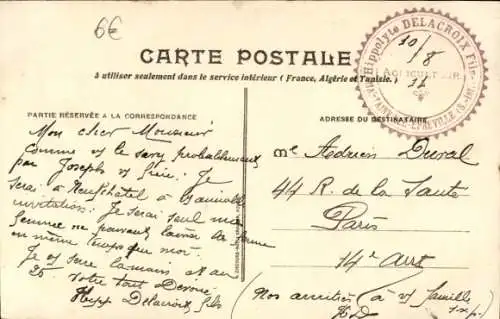 6€
CARTE POSTALE
à utiliser seulement dans le service intérieur (France, Algérie et Tunisie.)
Hippolyte DELACROIX Fils
AGRICULTEUR
10/8
PARTIE RÉSERVÉE A LA CORRESPONDANCE
ADRESSE DU DESTINATAIRE
Mon cher Monsieur
Comme vs le savez probablement
par Joseph vs frère. Je
serai à Neufchatel à
invitation. Je serai seul ma
femme ne pouvant laisser la ferme
en même temps que moi.
Je vs serre la main et au
25. Votre tout Dévoué
Hipp Delacroix fils
Mr Adrien Duval
44 R. de la Santé
Paris
14e Arrt
(Nos amitiés à vs famille
HD